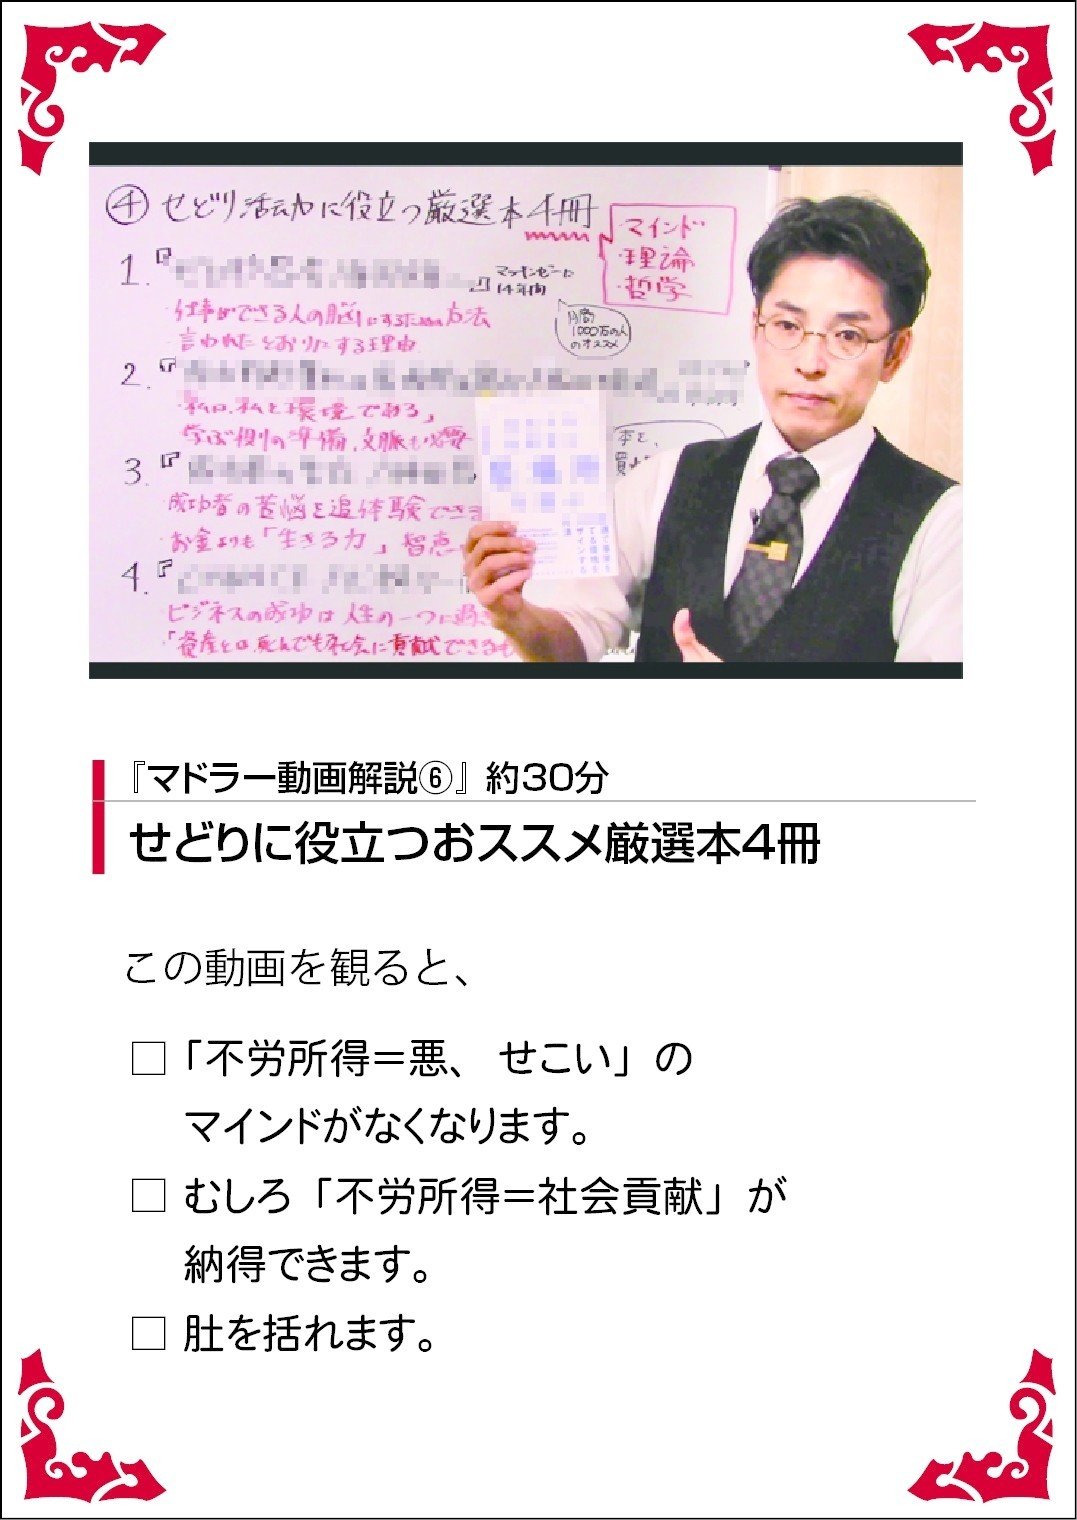 ④ せどり活動に役立つ厳選本4冊
・マインド
・理論
・哲学
1.『 』マッキンゼーに
14年間
・仕事ができる人の脳にするための方法
・言われたとおりにする理由
月商
1000万の人
のオススメ
2.『
・「私は、私と環境である」
学ぶ側の準備、文脈も必要
本を、
3.『
・成功者の苦悩を追体験できる
・お金よりも「生きる力」智恵
4.『
ビジネスの成功は人生の一つに過ぎ
・「資産とは死んでも社会に貢献できるも
『マドラー動画解説⑥』約30分
せどりに役立つおススメ厳選本4冊
この動画を観ると、
□「不労所得＝悪、せこい」の
マインドがなくなります。
□ むしろ「不労所得＝社会貢献」が
納得できます。
□ 肚を括れます。